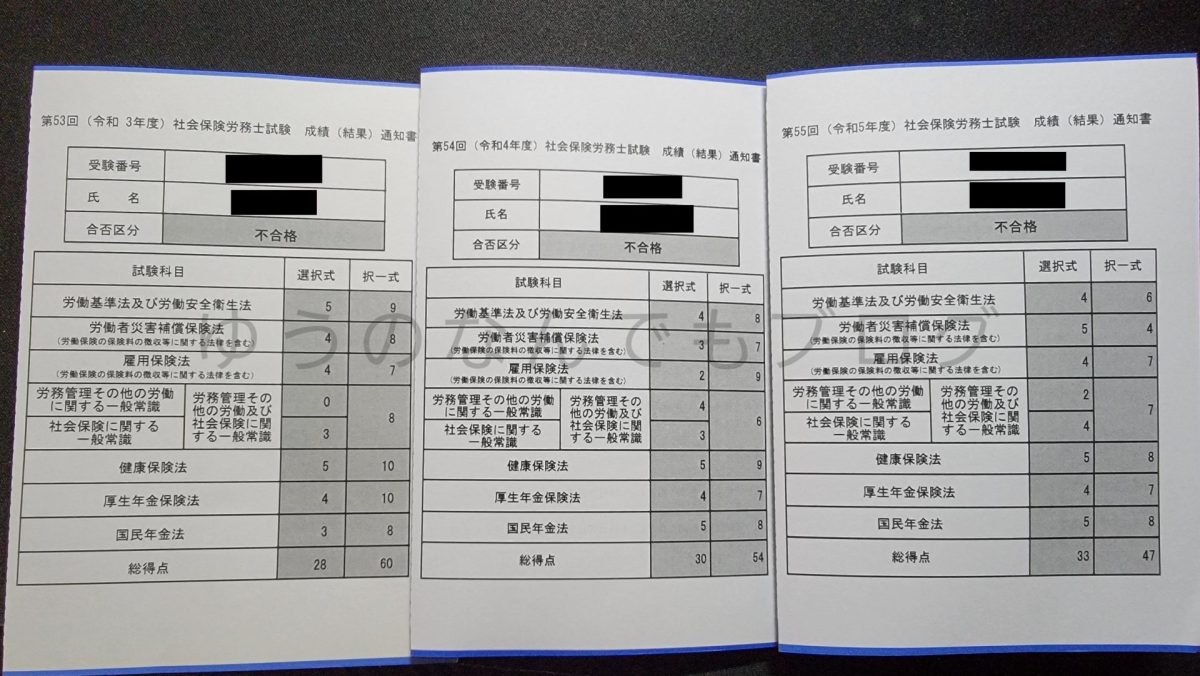 第53回（令和 3年度）社会保険労務士試験 成績（結果）通知書
受験番号
氏 名
合否区分 不合格
試験科目 選択式 択一式
労働基準法及び労働安全衛生法 5 9
労働者災害補償保険法 4 8
（労働保険の保険料の徴収等に関する法律を含む）
雇用保険法 4 7
（労働保険の保険料の徴収等に関する法律を含む）
労務管理その他の労働
に関する一般常識
0
社会保険に関する
一般常識
3
労務管理その
他の労働及び
社会保険に関
する一般常識
8
健康保険法 5 10
厚生年金保険法 4 10
国民年金法 3 8
総得点 28 60
第54回（令和4年度）社会保険労務士試験 成績（結果）通知書
受験番号
氏名
合否区分 不合格
試験科目 選択式 択一式
労働基準法及び労働安全衛生法 4 8
労働者災害補償保険法 3 7
（労働保険の保険料の徴収等に関する法律を含む）
雇用保険法 2 9
（労働保険の保険料の徴収等に関する法律を含む）
労務管理その他の労働
に関する一般常識
4
社会保険に関する
一般常識
3
労務管理その
他の労働及び
社会保険に関
する一般常識
6
健康保険法 5 9
厚生年金保険法 4 7
国民年金法 5 8
総得点 30 54
第55回（令和5年度）社会保険労務士試験 成績（結果）通知書
受験番号
氏名
合否区分 不合格
試験科目 選択式 択一式
労働基準法及び労働安全衛生法 4 6
労働者災害補償保険法 5 4
（労働保険の保険料の徴収等に関する法律を含む）
雇用保険法 4 7
（労働保険の保険料の徴収等に関する法律を含む）
労務管理その他の労働
に関する一般常識
2
社会保険に関する
一般常識
4
労務管理その
他の労働及び
社会保険に関
する一般常識
7
健康保険法 5 8
厚生年金保険法 4 7
国民年金法 5 8
総得点 33 47
ゆうのなんでもブログ